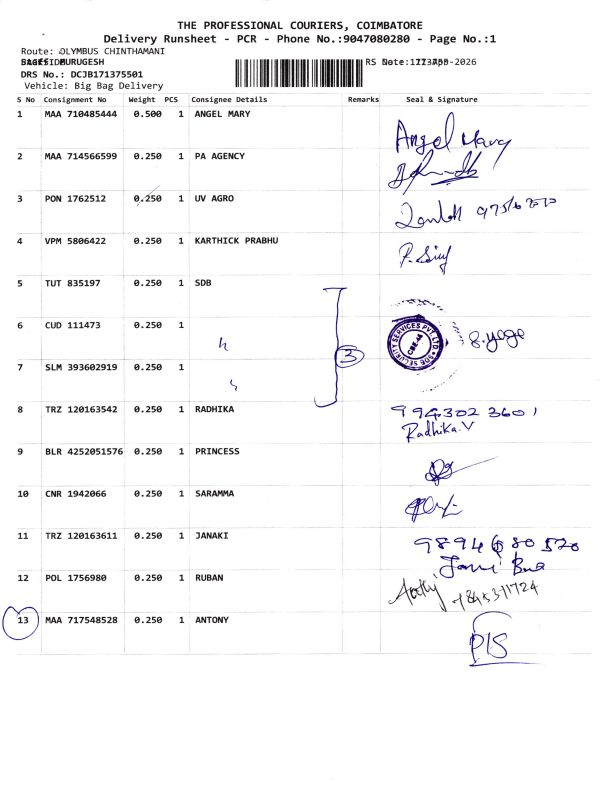 THE PROFESSIONAL COURIERS, COIMBATORE
Delivery Runsheet - PCR - Phone No.:9047080280 - Page No.:1
Route: OLYMBUS CHINTHAMANI
MURUGESH
DRS No.: DCJB171375501
Vehicle: Big Bag Delivery
S No Consignment No Weight PCS Consignee Details Remarks Seal & Signature
1 MAA 710485444 0.500 1 ANGEL MARY Angel Mary
2 MAA 714566599 0.250 1 PA AGENCY
3 PON 1762512 0.250 1 UV AGRO
4 VPM 5806422 0.250 1 KARTHICK PRABHU
5 TUT 835197 0.250 1 SDB
6 CUD 111473 0.250 1 SDB SECURITY SERVICES PVT LTD
3
7 SLM 393602919 0.250 1
8 TRZ 120163542 0.250 1 RADHIKA 9943023601
Radhika.V
9 BLR 4252051576 0.250 1 PRINCESS
10 CNR 1942066 0.250 1 SARAMMA
11 TRZ 120163611 0.250 1 JANAKI
12 POL 1756980 0.250 1 RUBAN
13 MAA 717548528 0.250 1 ANTONY PIS